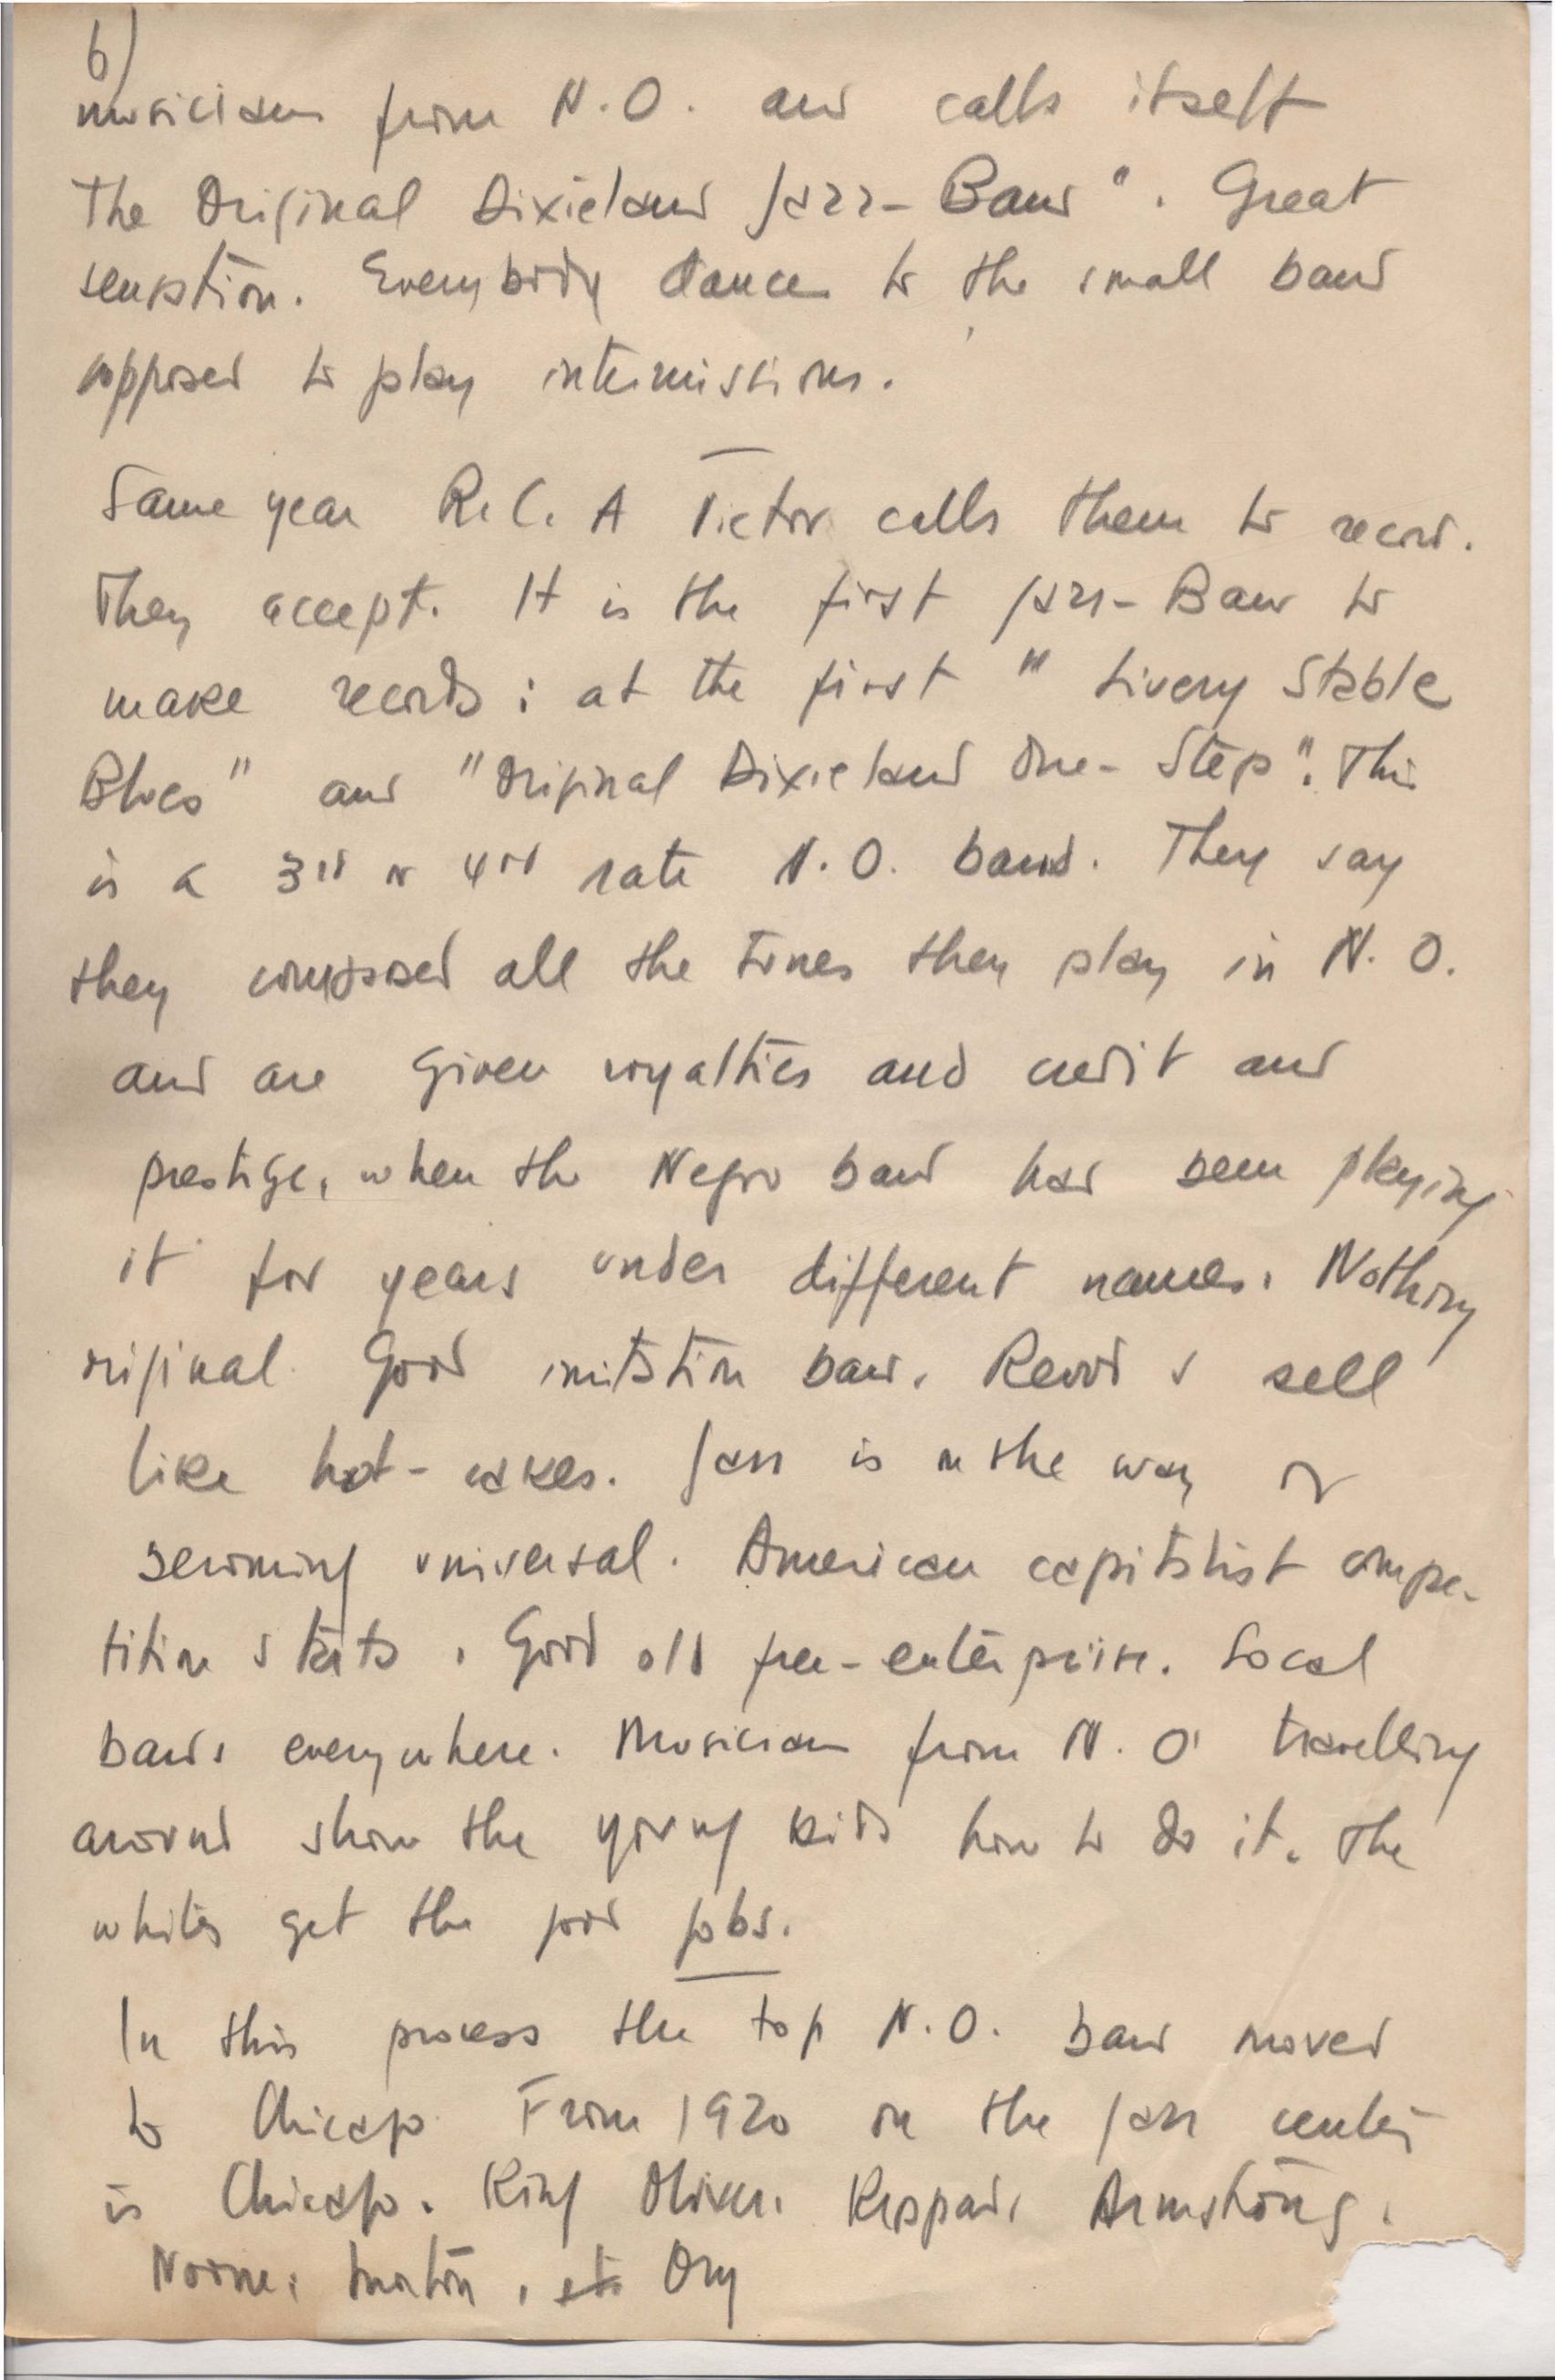 6)
musicians from N.O. and calls itself
The Original Dixieland Jazz-Band". Great
sensation. Everybody dances to the small band
supposed to play intermissions.
Same year R.C.A Victor calls them to record.
They accept. It is the first Jazz-Band to
make records: at the first "Livery Stable
Blues" and "Original Dixieland One-Step". This
is a 3rd or 4rd rate N.O. band. They say
they composed all the tunes they play in N.O.
and are given royalties and credit and
prestige, when the Negro band had been playing
it for years under different names. Nothing
original. Good imitation band. Records sell
like hot-cakes. Jazz is on the way of
becoming universal. American capitalist compe-
tition starts. Good old free-enterprise. Local
bands everywhere. Musicians from N.O. travelling
around show the young kids how to do it. The
whites get the good jobs.
In this process the top N.O. band moved
to Chicago. From 1920 on the Jazz center
is Chicago. King Oliver. Keppard, Armstrong,
Noone, Morton, etc Ory